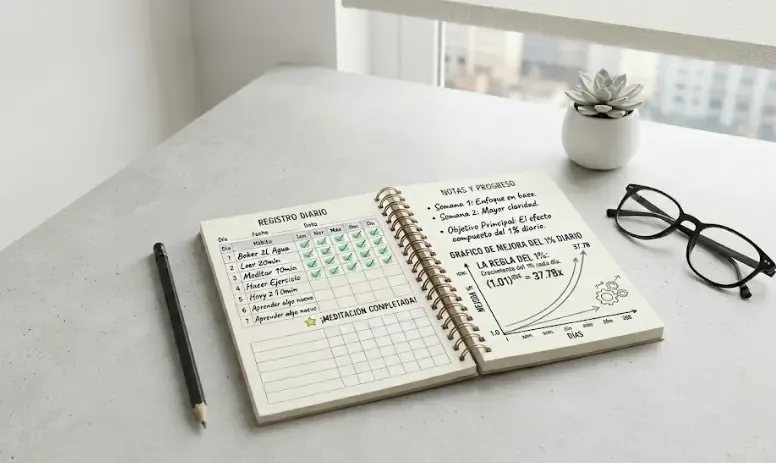 REGISTRO DIARIO
Día Fecha
Día Hábito Mar
1 Beber 2L Agua
2 Leer 20min
3 Meditar 10min
4 Hacer Ejercicio
5
6 Aprender algo nuevo
7 Aprender algo nuevo
¡MEDITACIÓN COMPLETADA!
NOTAS Y PROGRESO
• Semana 1: Enfoque en base.
• Semana 2: Mayor claridad.
• Objetivo Principal: El efecto
compuesto del 1% diario.
GRÁFICO DE MEJORA DEL 1% DIARIO
37.78
LA REGLA DEL 1%:
del 1% cada día.
= 37.78x
% MEJORA
1.0
1
DÍAS